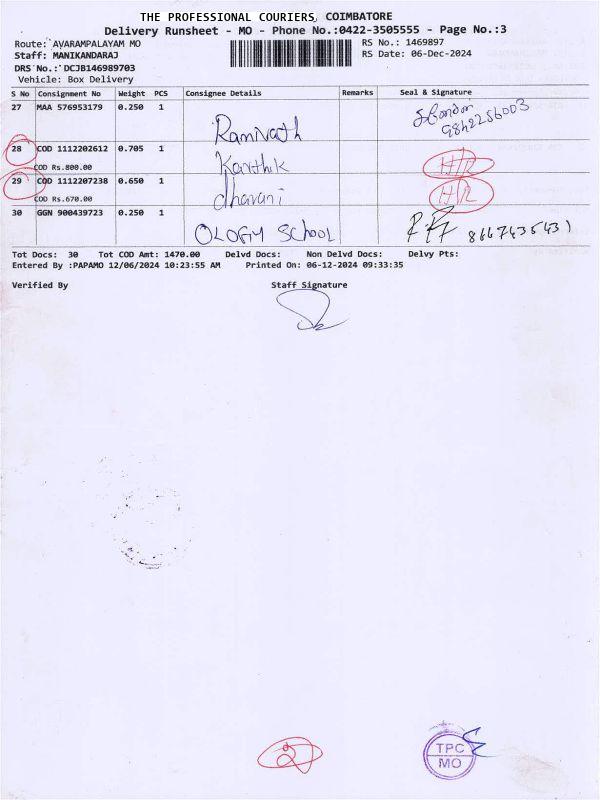 THE PROFESSIONAL COURIERS, COIMBATORE
Delivery Runsheet - MO - Phone No.:0422-3505555 - Page No.:3
Route: AVARAMPALAYAM MO
Staff: MANIKANDARAJ
DRS No.: DCJB146989703
Vehicle: Box Delivery
RS No.: 1469897
RS Date: 06-Dec-2024
S No Consignment No Weight PCS Consignee Details Remarks Seal & Signature
27 MAA 576953179 0.250 1 Ramnath 9842256003
28 COD 1112202612 0.705 1 Karthik H/R
COD Rs.800.00
29 COD 1112207238 0.650 1 dharani H/R
COD Rs.670.00
30 GGN 900439723 0.250 1 OLOGY SCHOOL 8667435431
Tot Docs: 30 Tot COD Amt: 1470.00 Delvd Docs: Non Delvd Docs: Delvy Pts:
Entered By :PAPAMO 12/06/2024 10:23:55 AM Printed On: 06-12-2024 09:33:35
Verified By Staff Signature
2
TPC
MO